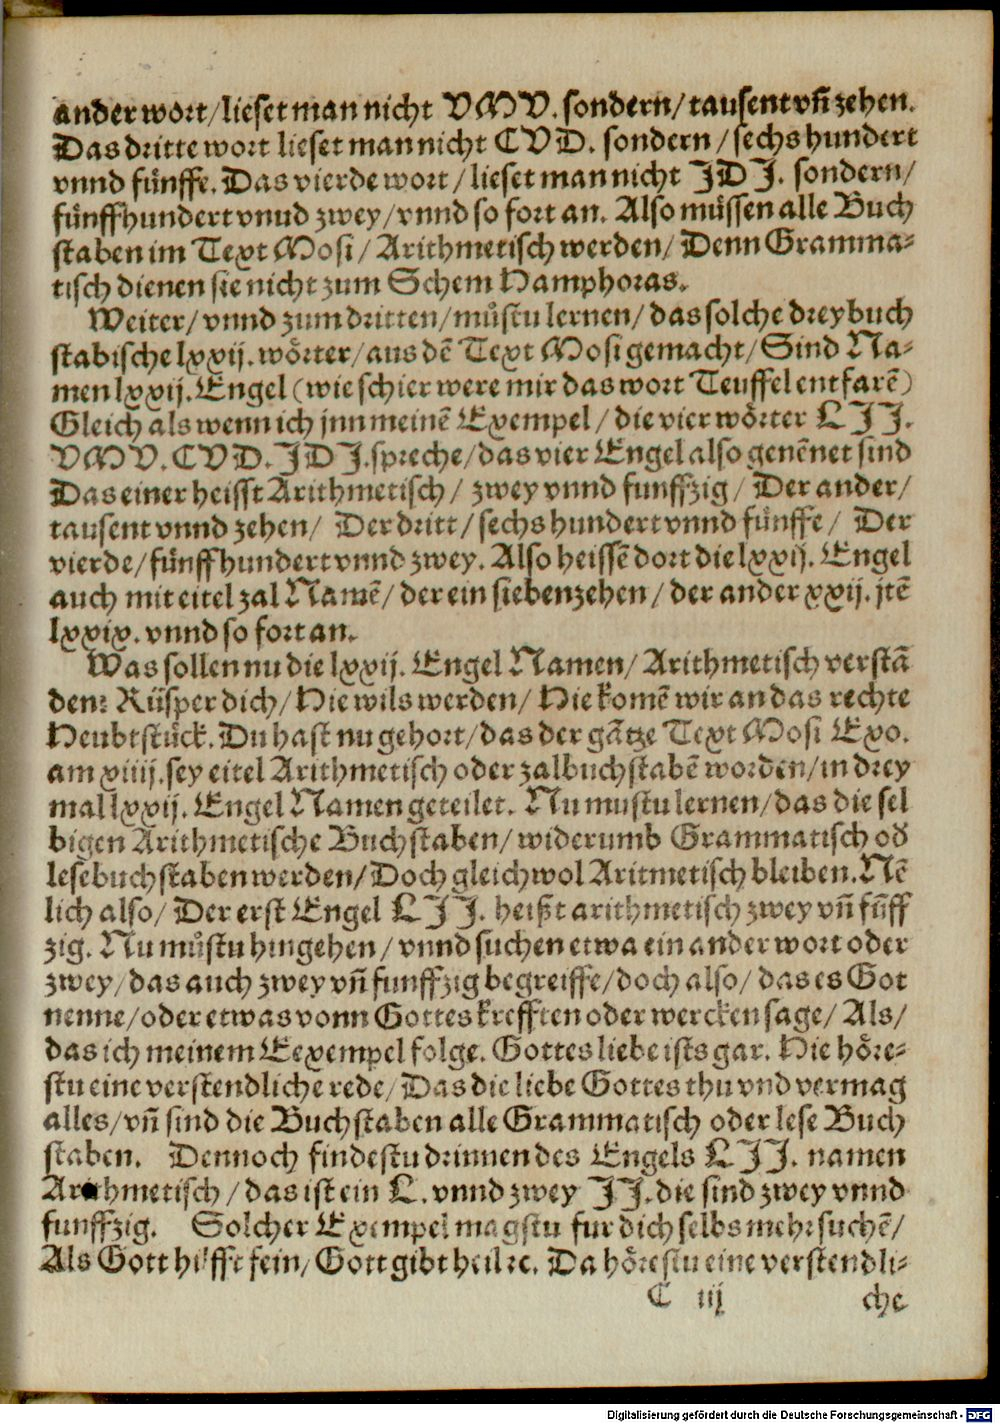 ander wort/lieset man nicht VMV. sondern/tausent vñ zehen.
Das dritte wort lieset man nicht CVD. sondern/sechs hundert
vnnd fünffe. Das vierde wort/lieset man nicht IDI. sondern/
fünffhundert vnud zwey/vnnd so fort an. Also müssen alle Buch
staben im Text Mosi/Arithmetisch werden/Denn Gramma⸗
tisch dienen sie nicht zum Schem Hamphoras.
Weiter/vnnd zum dritten/můstu lernen/das solche drey buch
stabische lxxij. wörter/aus dẽ Text Mosi gemacht/Sind Na⸗
men lxxij. Engel (wie schier were mir das wort Teuffel entfarẽ)
Gleich als wenn ich jnn meinẽ Exempel/die vier wörter LII.
VMV. CVD. IDI. spreche/das vier Engel also genẽnet sind
Das einer heisst Arithmetisch/zwey vnnd funffzig/Der ander/
tausent vnnd zehen/Der dritt/sechs hundert vnnd fünffe/Der
vierde/fünffhundert vnnd zwey. Also heissẽ dort die lxxij. Engel
auch mit eitel zal Namẽ/der ein siebenzehen/der ander xxij. jtẽ
lxxix. vnnd so fort an.
Was sollen nu die lxxij. Engel Namen/Arithmetisch verstã
den: Rüsper dich/Hie wils werden/Hie komẽ wir an das rechte
Heubtstück. Du hast nu gehort/das der gãtze Text Mosi Exo.
am xiiij. sey eitel Arithmetisch oder zalbuchstabẽ worden/in drey
mal lxxij. Engel Namen geteilet. Nu mustu lernen/das die sel
bigen Arithmetische Buchstaben/widerumb Grammatisch oď
lesebuchstaben werden/Doch gleichwol Aritmetisch bleiben. Nẽ
lich also/Der erst Engel LII. heißt arithmetisch zwey vñ fũff
zig. Nu můstu hingehen/vnnd suchen etwa ein ander wort oder
zwey/das auch zwey vñ funffzig begreiffe/doch also/das es Got
nenne/oder etwas vonn Gottes krefften oder wercken sage/Als/
das ich meinem Eexempel folge. Gottes liebe ists gar. Hie höre⸗
stu eine verstendliche rede/Das die liebe Gottes thu vnd vermag
alles/vñ sind die Buchstaben alle Grammatisch oder lese Buch
staben. Dennoch findestu drinnen des Engels LII. namen
Arithmetisch/das ist ein L. vnnd zwey II. die sind zwey vnnd
funffzig. Solcher Exempel magstu fur dich selbs mehr suchẽ/
Als Gott hilfft fein/Gott gibt heil re. Da hörestu eine verstendli⸗
C iij che
Digitalisierung gefördert durch die Deutsche Forschungsgemeinschaft - DFG